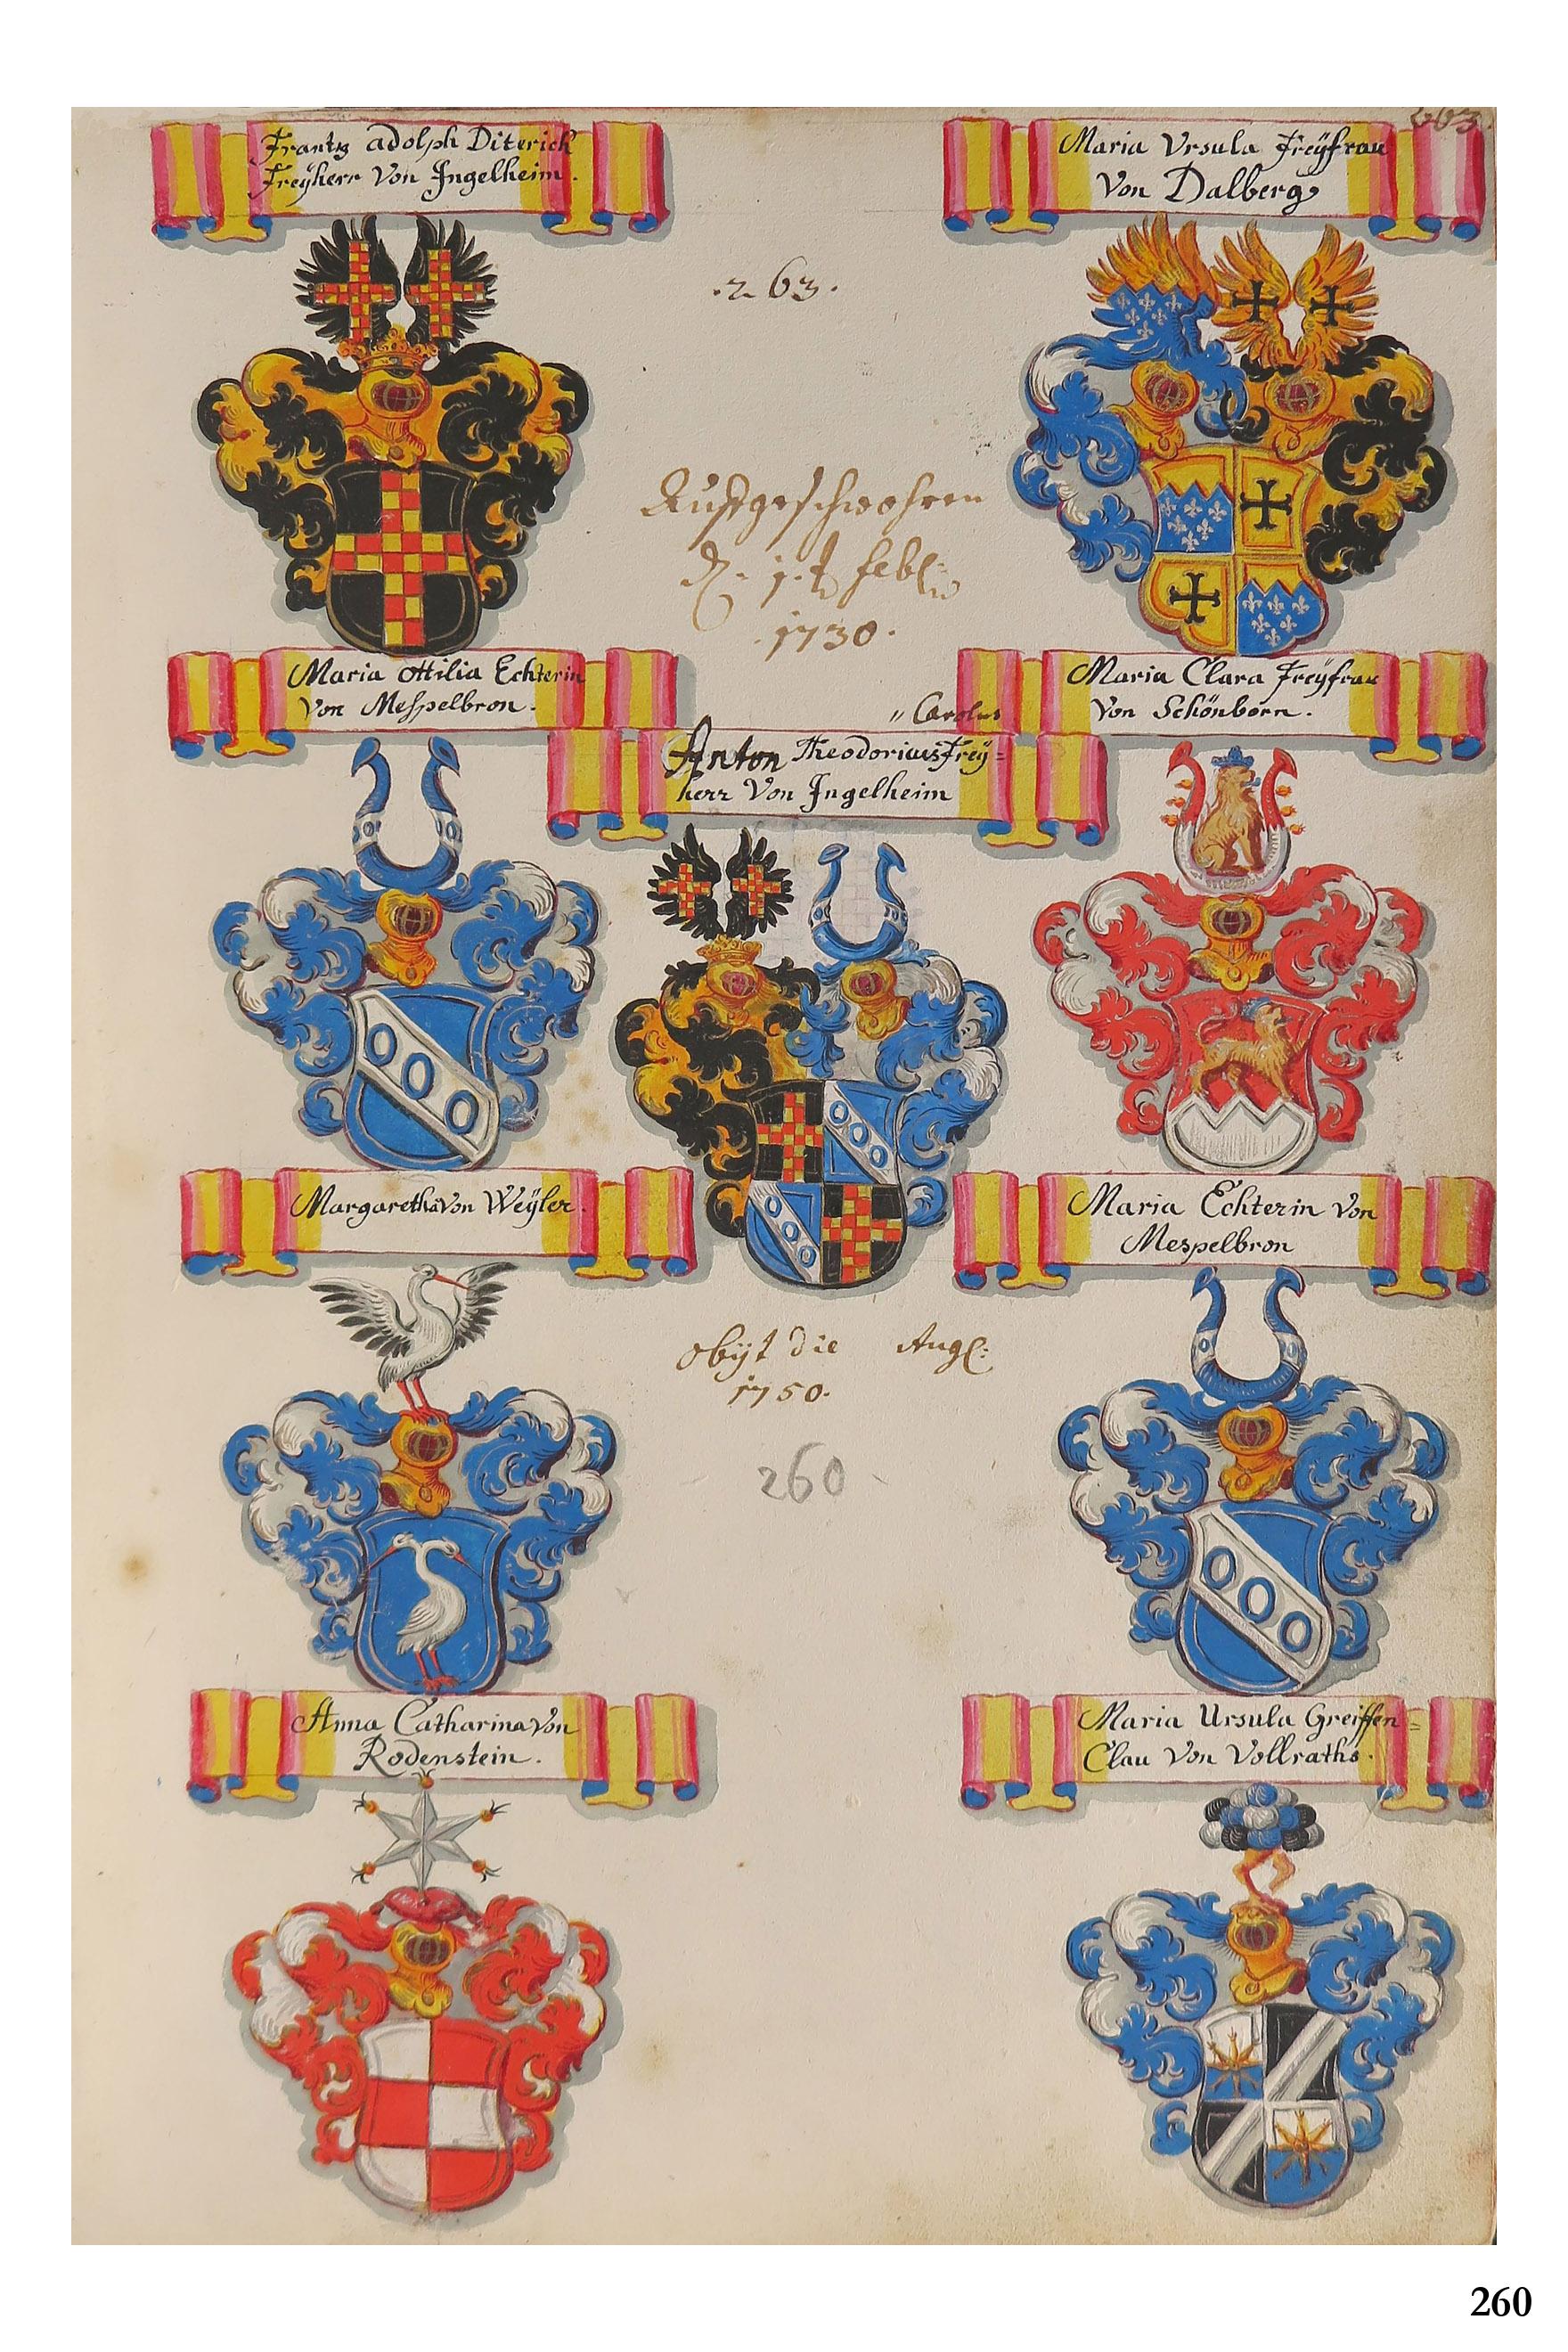 263.
Frantz adolph Diterich
Freÿherr Von Ingelheim.
Maria Vrsula Freÿfrau
Von Dalberg
.263.
Auffgeschwohren
d. 1.t febr:
.1730.
Maria Ottilia Echterin
Von Mespelbron.
Maria Clara Freÿfrau
Von Schönborn.
" Carolus
Anton Theodoricus Freÿ=
herr Von Ingelheim
Margaretha Von Weÿler.
Maria Echterin Von
Mespelbron
obijt die Aug:
1750.
260
Anna Catharina Von
Rodenstein.
Maria Ursula Greiffen=
Clau Von Vollraths.
260